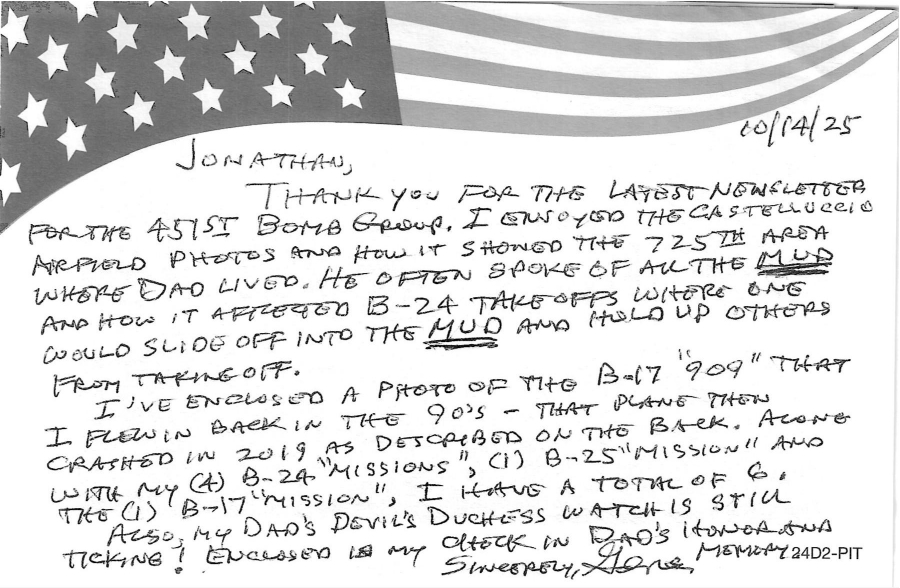 10/14/25
JONATHAN,
THANK YOU FOR THE LATEST NEWSLETTER
FOR THE 451ST BOMB GROUP. I ENJOYED THE CASTELLUCCIO
AIRFIELD PHOTOS AND HOW IT SHOWED THE 725TH AREA
WHERE DAD LIVED. HE OFTEN SPOKE OF ALL THE MUD
AND HOW IT AFFECTED B-24 TAKEOFFS WHERE ONE
WOULD SLIDE OFF INTO THE MUD AND HOLD UP OTHERS
FROM TAKING OFF.
I'VE ENCLOSED A PHOTO OF THE B-17 "909" THAT
I FLEW IN BACK IN THE 90'S - THAT PLANE THEN
CRASHED IN 2019 AS DESCRIBED ON THE BACK. ALONG
WITH MY (4) B-24 "MISSIONS", (1) B-25 "MISSION" AND
THE (1) B-17 "MISSION", I HAVE A TOTAL OF 6.
ALSO, MY DAD'S DEVIL'S DUCHESS WATCH IS STILL
TICKING! ENCLOSED IS MY CHECK IN DAD'S HONOR AND
SINCERELY, Gene, MEMORY 24D2-PIT